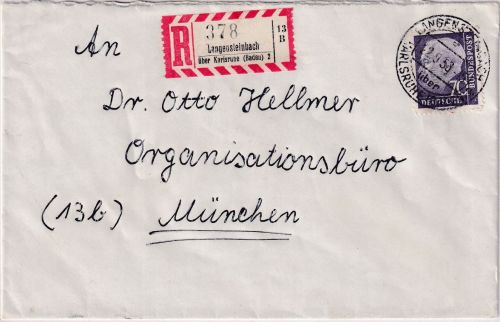 An
R
378
13
B
Langensteinbach
über Karlsruhe (Baden) 2
LANGENST
über
KARLSRUH
70
DEUTSCHE
BUNDESPOST
Dr. Otto Hellmer
Organisationsbüro
(13b) München